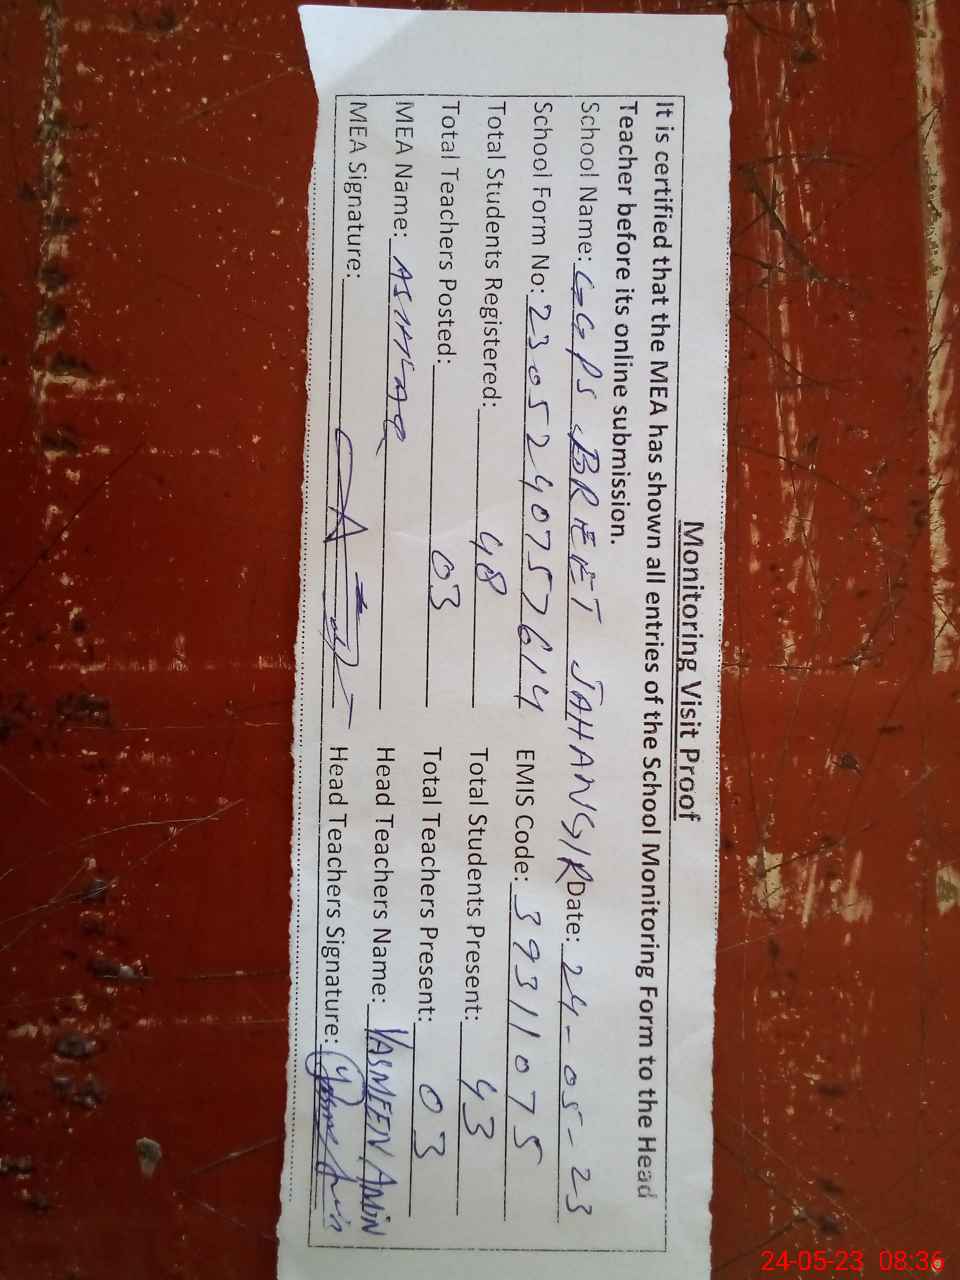 Monitoring Visit Proof
It is certified that the MEA has shown all entries of the School Monitoring Form to the Head
Teacher before its online submission.
School Name: GGPS BREET JAHANGIR Date: 24-05-23
School Form No: 2305240757614 EMIS Code: 39311075
Total Students Registered: 48 Total Students Present: 43
Total Teachers Posted: 03 Total Teachers Present: 03
MEA Name: Head Teachers Name: YASMEEN AMIN
MEA Signature: Head Teachers Signature:
24-05-23 08:36